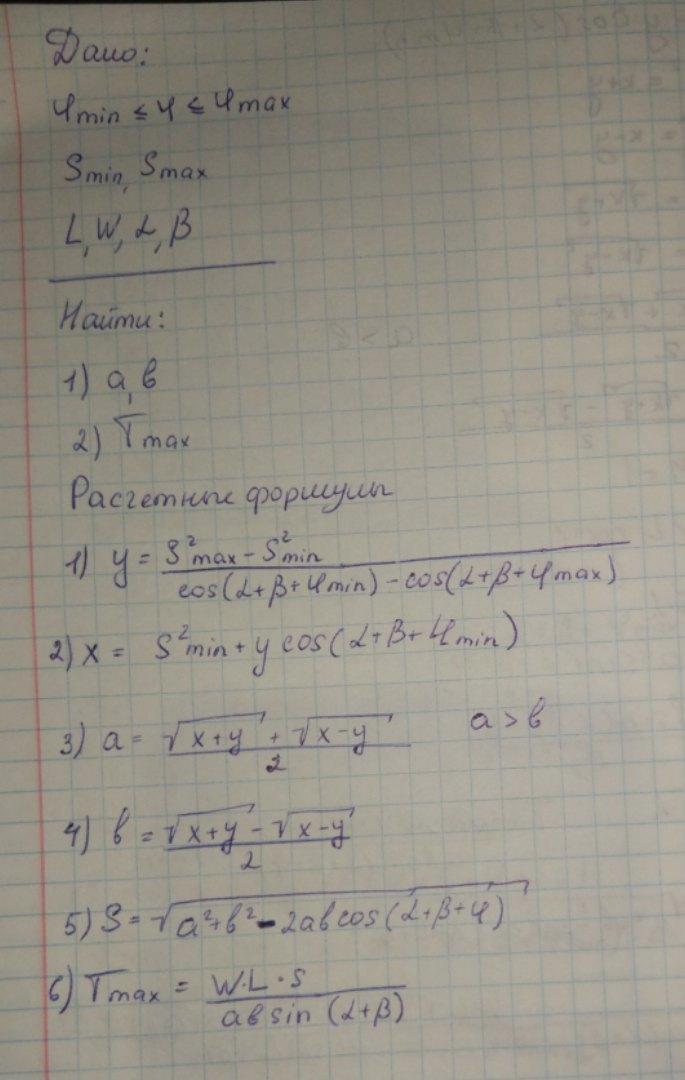 Дано:
φmin ≤ φ ≤ φmax
Smin, Smax
L, W, α, β
Найти:
1) a, b
2) Tmax
Расчетные формулы
1) y = (S²max - S²min) / (cos(α+β+φmin) - cos(α+β+φmax))
2) x = S²min + y cos(α+β+φmin)
3) a = (√(x+y) + √(x-y)) / 2    a > b
4) b = (√(x+y) - √(x-y)) / 2
5) S = √(a²+b²-2ab cos(α+β+φ))
6) Tmax = (W·L·S) / (ab sin(α+β))